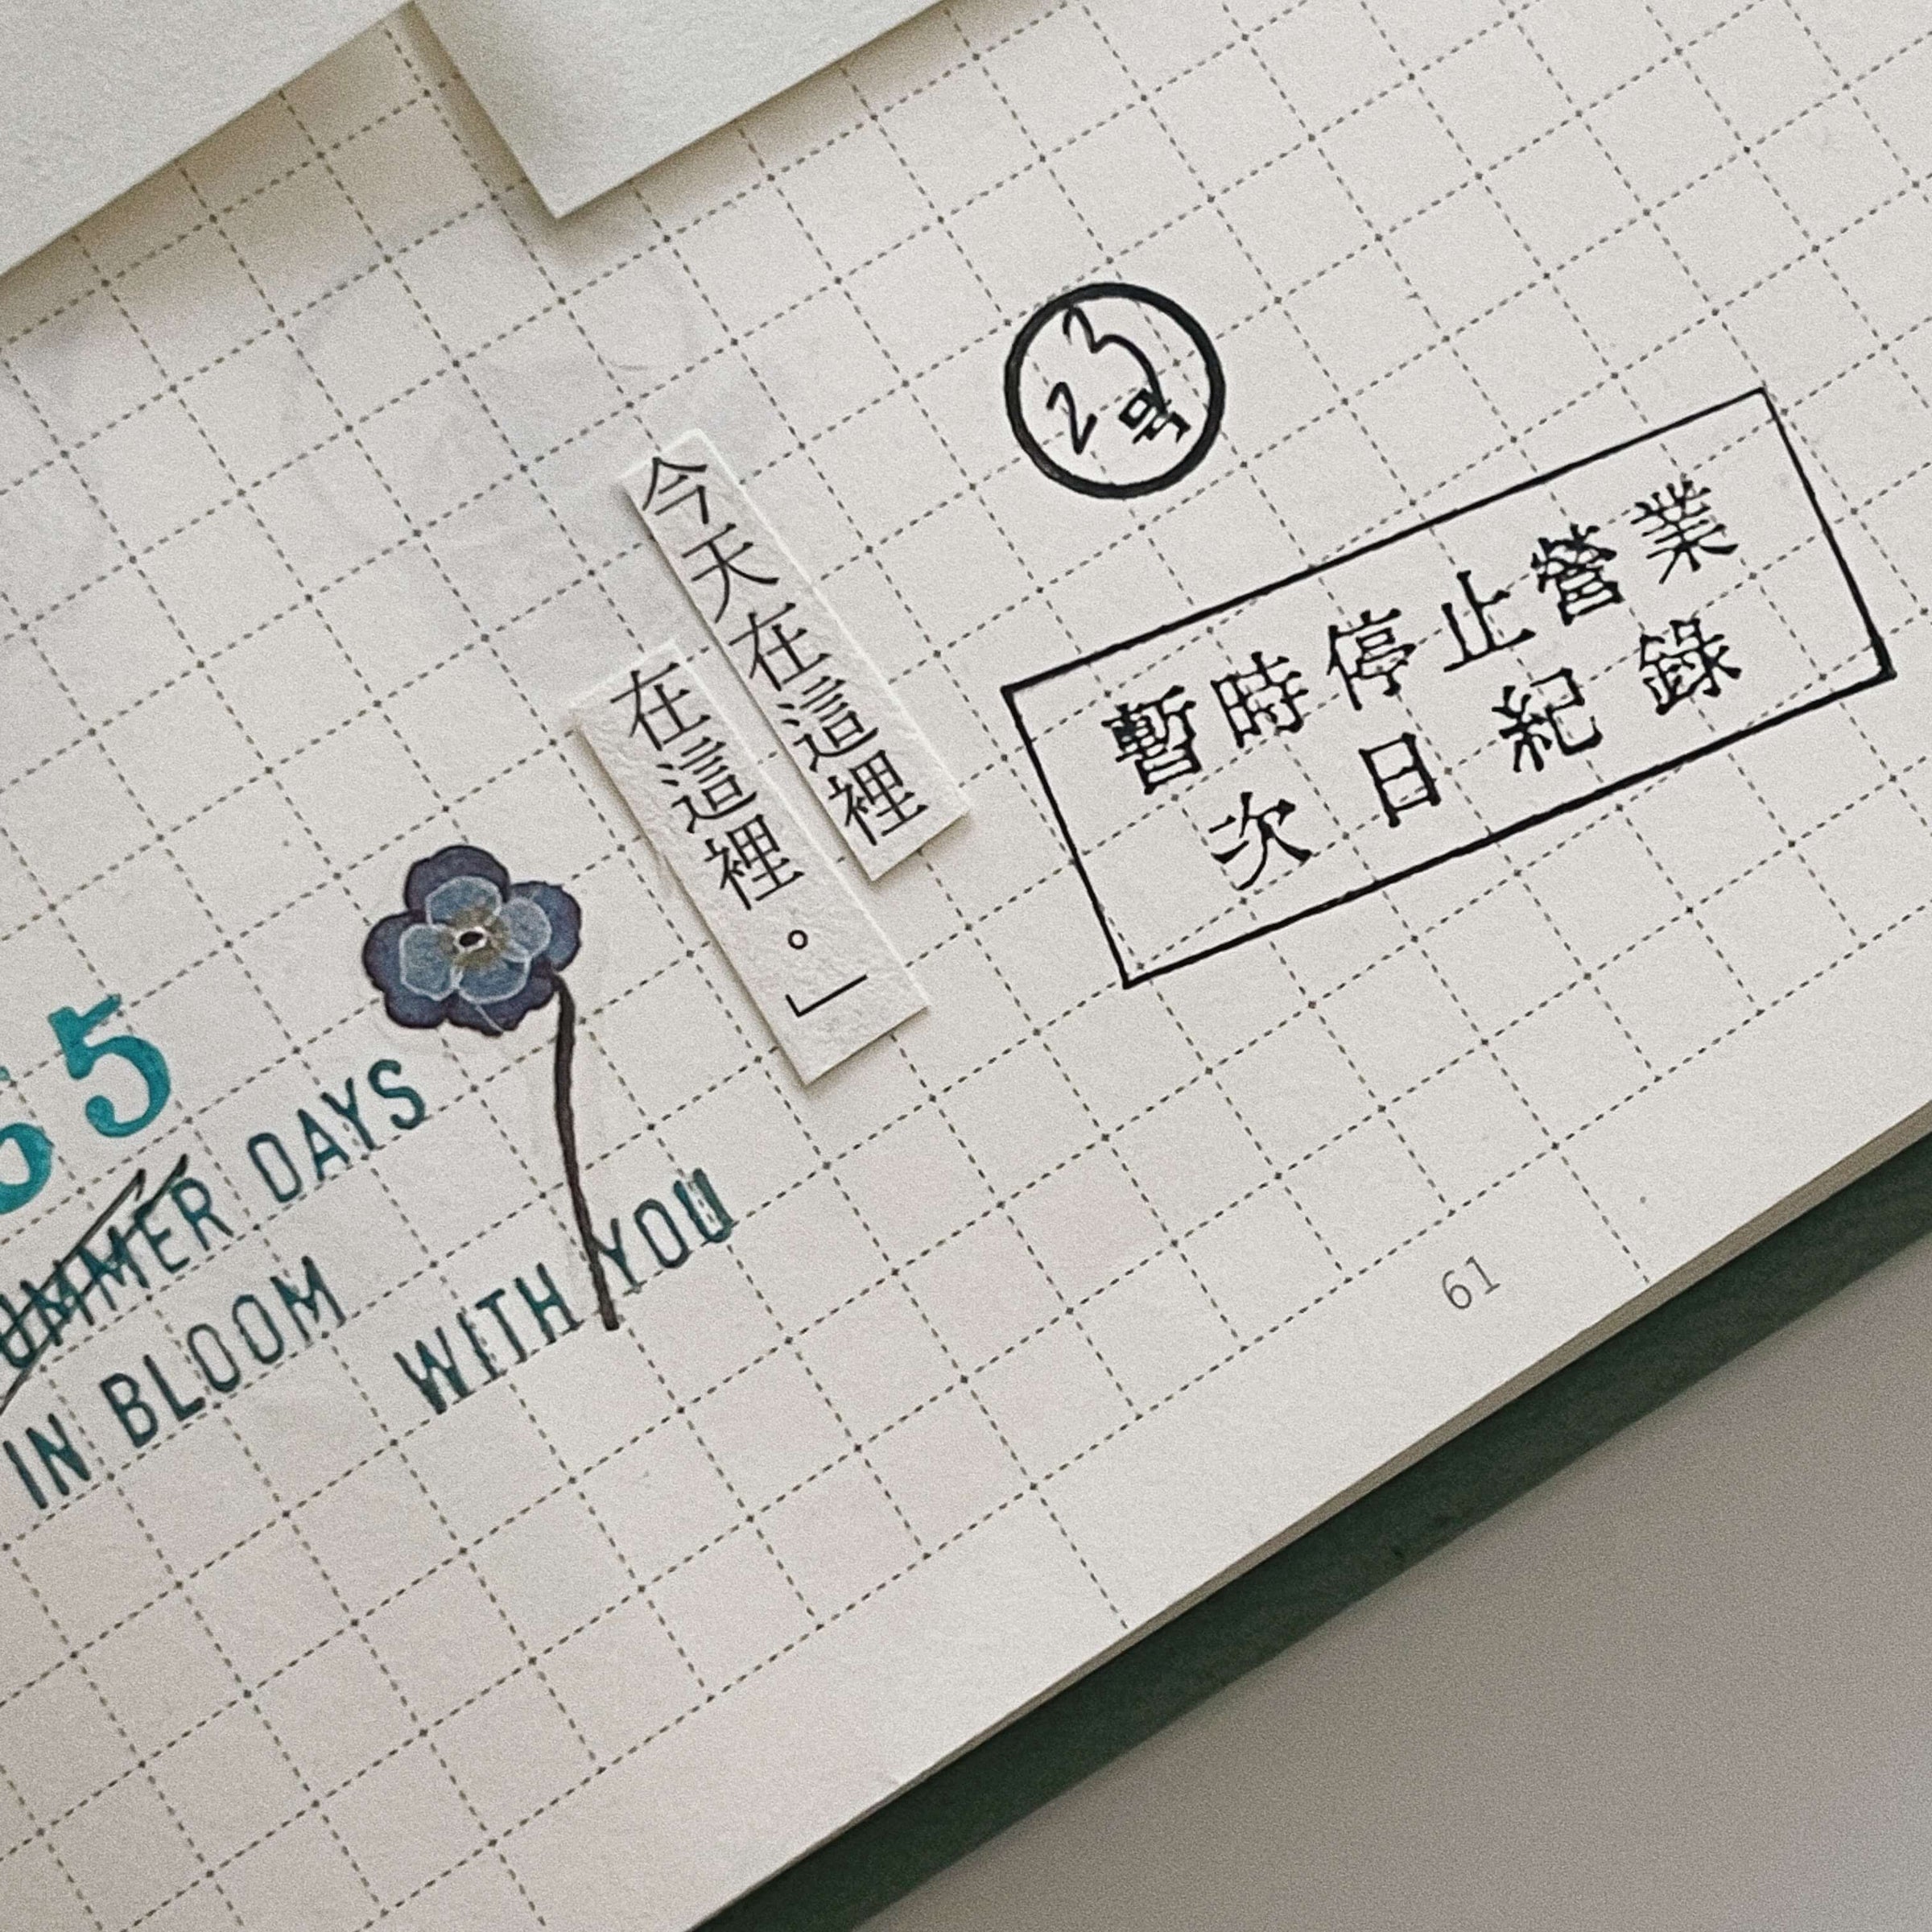 今天在這裡
在這裡。」
暫時停止營業
次日紀錄
5
SUMMER DAYS
IN BLOOM WITH YOU
61